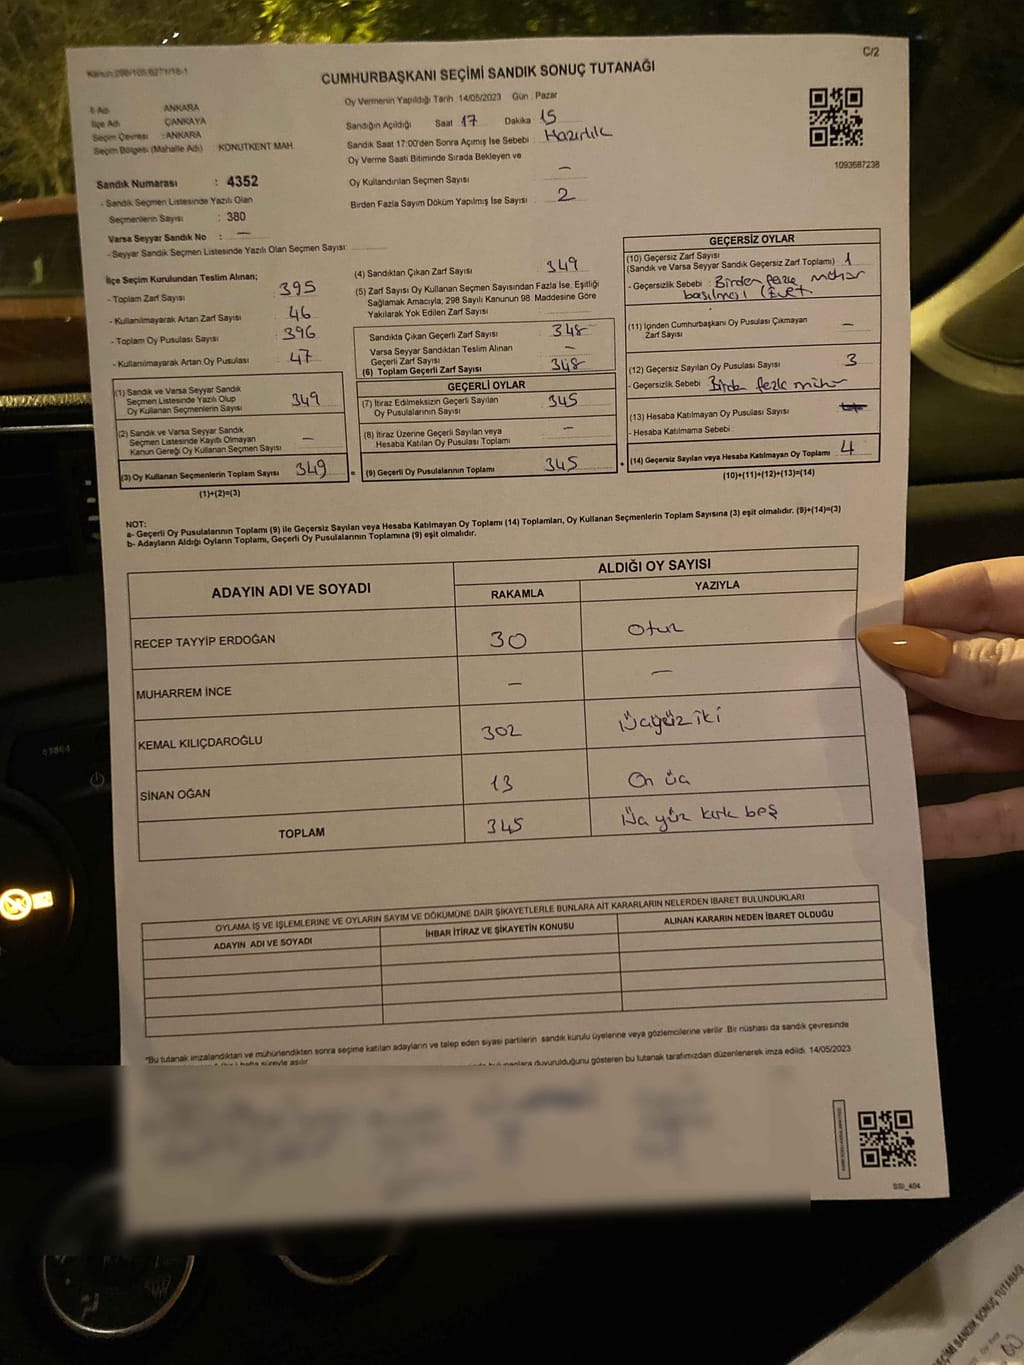 Kanun:298/105,6271/18-1
C/2
CUMHURBAŞKANI SEÇİMİ SANDIK SONUÇ TUTANAĞI
İl Adı : ANKARA
İlçe Adı : ÇANKAYA
Seçim Çevresi : ANKARA
Seçim Bölgesi (Mahalle Adı) : KONUTKENT MAH
Oy Vermenin Yapıldığı Tarih : 14/05/2023 Gün : Pazar
Sandığın Açıldığı Saat 17 Dakika 15
Sandık Saat 17:00'den Sonra Açımış İse Sebebi : Hazırlık
Oy Verme Saati Bitiminde Sırada Bekleyen ve
Oy Kullandırılan Seçmen Sayısı : —
Birden Fazla Sayım Döküm Yapılmış İse Sayısı : 2
1093687238
Sandık Numarası : 4352
- Sandık Seçmen Listesinde Yazılı Olan
Seçmenlerin Sayısı : 380
Varsa Seyyar Sandık No : —
- Seyyar Sandık Seçmen Listesinde Yazılı Olan Seçmen Sayısı:
İlçe Seçim Kurulundan Teslim Alınan;
- Toplam Zarf Sayısı 395
- Kullanılmayarak Artan Zarf Sayısı 46
- Toplam Oy Pusulası Sayısı 396
- Kullanılmayarak Artan Oy Pusulası 47
(1) Sandık ve Varsa Seyyar Sandık
Seçmen Listesinde Yazılı Olup
Oy Kullanan Seçmenlerin Sayısı 349
(2) Sandık ve Varsa Seyyar Sandık
Seçmen Listesinde Kayıtlı Olmayan
Kanun Gereği Oy Kullanan Seçmen Sayısı —
(3) Oy Kullanan Seçmenlerin Toplam Sayısı 349 =
(1)+(2)=(3)
(4) Sandıktan Çıkan Zarf Sayısı 349
(5) Zarf Sayısı Oy Kullanan Seçmen Sayısından Fazla İse, Eşitliği
Sağlamak Amacıyla, 298 Sayılı Kanunun 98. Maddesine Göre
Yakılarak Yok Edilen Zarf Sayısı :
Sandıkta Çıkan Geçerli Zarf Sayısı 348
Varsa Seyyar Sandıktan Teslim Alınan
Geçerli Zarf Sayısı —
(6) Toplam Geçerli Zarf Sayısı 348
GEÇERLİ OYLAR
(7) İtiraz Edilmeksizin Geçerli Sayılan
Oy Pusulalarının Sayısı 345
(8) İtiraz Üzerine Geçerli Sayılan veya
Hesaba Katılan Oy Pusulası Toplamı —
(9) Geçerli Oy Pusulalarının Toplamı 345 +
GEÇERSİZ OYLAR
(10) Geçersiz Zarf Sayısı
(Sandık ve Varsa Seyyar Sandık Geçersiz Zarf Toplamı) 1
- Geçersizlik Sebebi : Birden fazla mühür
basılması (Evet
(11) İçinden Cumhurbaşkanı Oy Pusulası Çıkmayan
Zarf Sayısı —
(12) Geçersiz Sayılan Oy Pusulası Sayısı 3
- Geçersizlik Sebebi : Birden fazla mühür
(13) Hesaba Katılmayan Oy Pusulası Sayısı
- Hesaba Katılmama Sebebi :
(14) Geçersiz Sayılan veya Hesaba Katılmayan Oy Toplamı 4
(10)+(11)+(12)+(13)=(14)
NOT:
a- Geçerli Oy Pusulalarının Toplamı (9) ile Geçersiz Sayılan veya Hesaba Katılmayan Oy Toplamı (14) Toplamları, Oy Kullanan Seçmenlerin Toplam Sayısına (3) eşit olmalıdır. (9)+(14)=(3)
b- Adayların Aldığı Oyların Toplamı, Geçerli Oy Pusulalarının Toplamına (9) eşit olmalıdır.
ADAYIN ADI VE SOYADI
ALDIĞI OY SAYISI
RAKAMLA YAZIYLA
RECEP TAYYİP ERDOĞAN 30 Otuz
MUHARREM İNCE — —
KEMAL KILIÇDAROĞLU 302 Üçyüz iki
SİNAN OĞAN 13 On üç
TOPLAM 345 Üç yüz kırk beş
OYLAMA İŞ VE İŞLEMLERİNE VE OYLARIN SAYIM VE DÖKÜMÜNE DAİR ŞİKAYETLERLE BUNLARA AİT KARARLARIN NELERDEN İBARET BULUNDUKLARI
ADAYIN ADI VE SOYADI İHBAR İTİRAZ VE ŞİKAYETİN KONUSU ALINAN KARARIN NEDEN İBARET OLDUĞU
*Bu tutanak imzalandıktan ve mühürlendikten sonra seçime katılan adayların ve talep eden siyasi partilerin sandık kurulu üyelerine veya gözlemcilerine verilir .Bir nüshası da sandık çevresinde
hafta süreyle asılır. duyurulduğunu gösteren bu tutanak tarafımızdan düzenlenerek imza edildi. 14/05/2023
SSI_404
63864
SEÇİMİ SANDIK SONUÇ TUTANAĞI